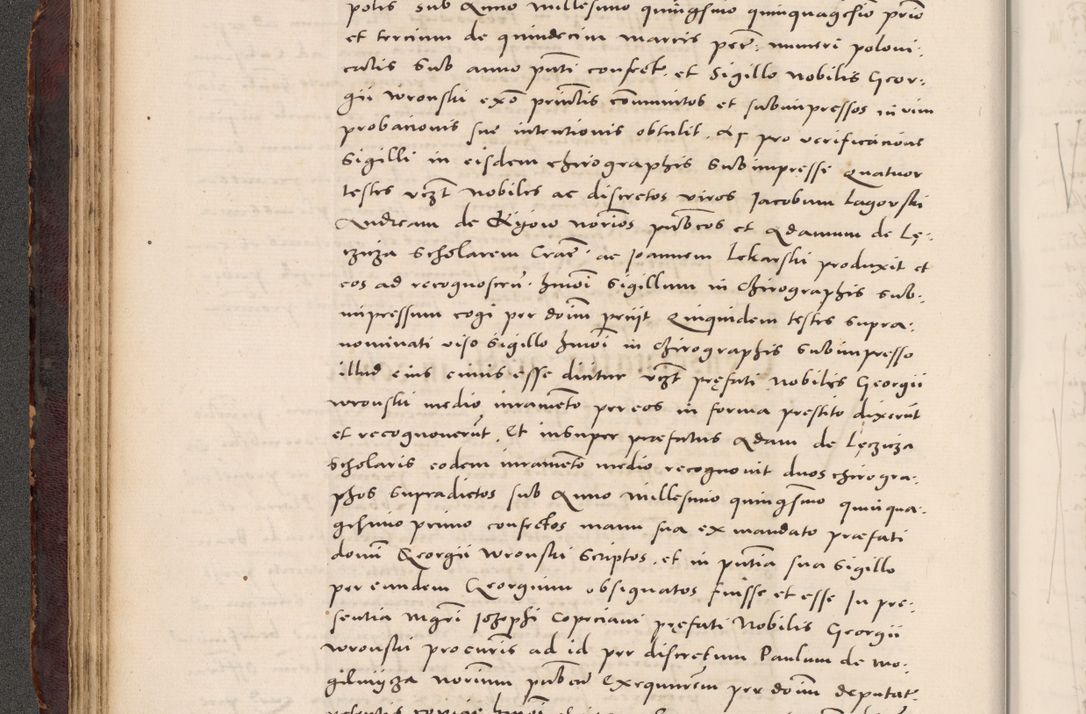 polis sub Anno millesimo quingesimo quinquagesimo primo
et tercium de quindecim marcis per: numeri poloni:
calis sub anno pnti confect. et Sigillo nobilis Geor:
gii Wronski exo principalis communitos et subimpressos in vim
probacionis sue intentionis obtulit. Ac pro verificacione
Sigilli in eisdem chirographis Subimpressi Quatuor
testes vczt nobiles ac discretos viros Jacobum Lagovski
Andream de Kijow norios publcos et Adamum de Lę:
czicza Scholarem Crac: ac Joannem Lekarski produxit et
eos ad recognoscen: hmoi Sigillum in chirographis sub:
impressum cogi per doim petijt Quiquidem testes supra:
nominati viso Sigillo hmoi in chirographis Subimpresso
illud eius cuius esse dicitur vczt pręfati nobilis Georgii
Wronski medio iuramento per eos in forma prestito dixerut
et recognoverut. Et insuper praefatus Adam de Lęczicza
Scholaris eodem iuramento medio recognovit duos chirogra:
phos supradictos sub Anno millesimo quingesimo quinqua:
gesimo primo confectos manu sua ex mandato praefati
domi Georgii Wronski Scriptos, et in pntia sua Sigillo
per eundem Georgium obsignatos Fuisse et esse In pre:
sentia Mgri Jozephi Coprciani pręfati Nobilis Georgii
Wronski procuris ad id per discretum Paulum de Mo:
gilnycza norium publcu Exequutorem per doim deputat